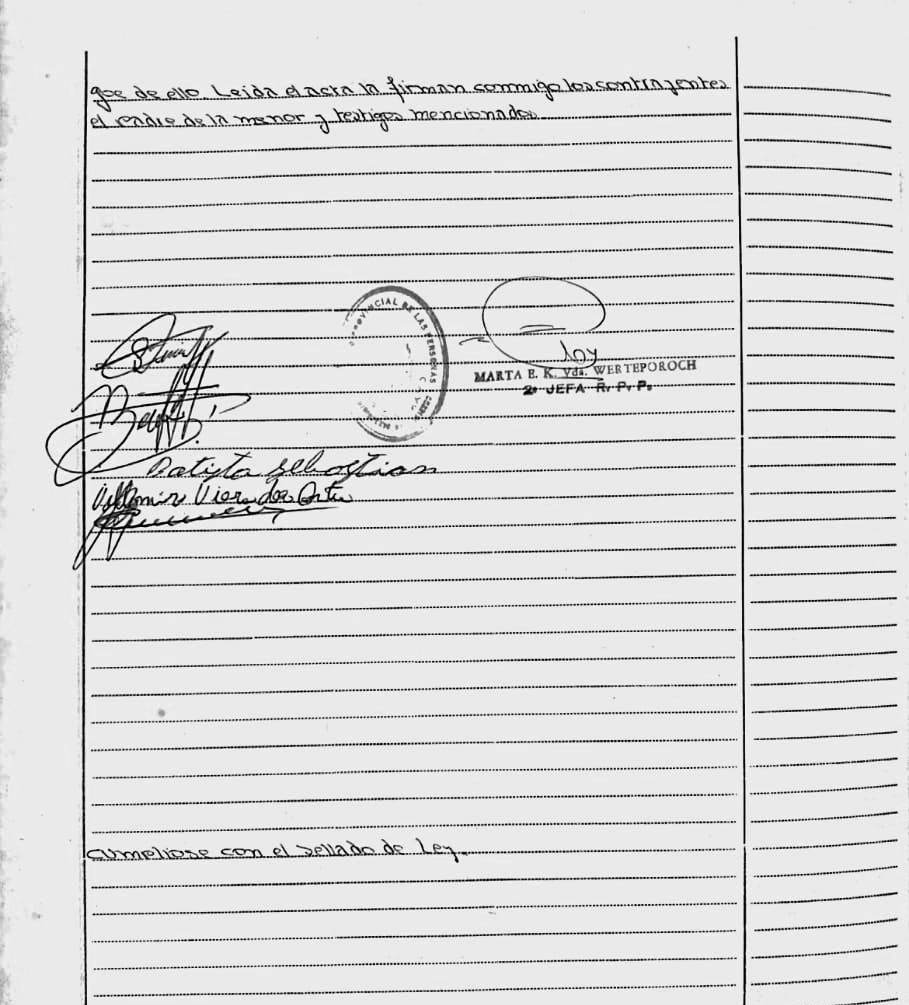 que de ello. Leida el acta la firman conmigo los contrayentes
el padre de la menor y testigos mencionados
PROVINCIAL DE LAS PERSONAS
MARTA E. K. Vda. WERTEPOROCH
2ª JEFA R. P. P.
Batista Sebastian
Cumpliose con el Sellado de Ley.